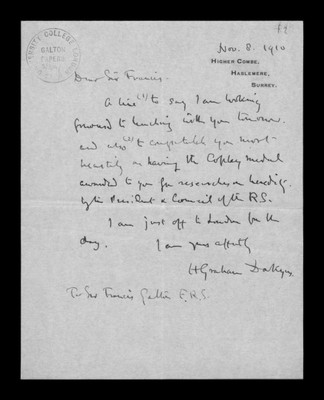 Nov. 8. 1910
HIGHER COMBE,
HASLEMERE,
SURREY.
GALTON
Dear Sir Francis.
A line (1) to say I am looking
forward to lunching with you tomorrow.
and also (2) to congratulate you most
heartily on having the Copley medal
awarded to you for researches on heredity.
by the President & Council of the R.S.
I am just off to London for the
day. I am yours affectly
H Graham Dakyns
To Sir Francis Galton F.R.S.